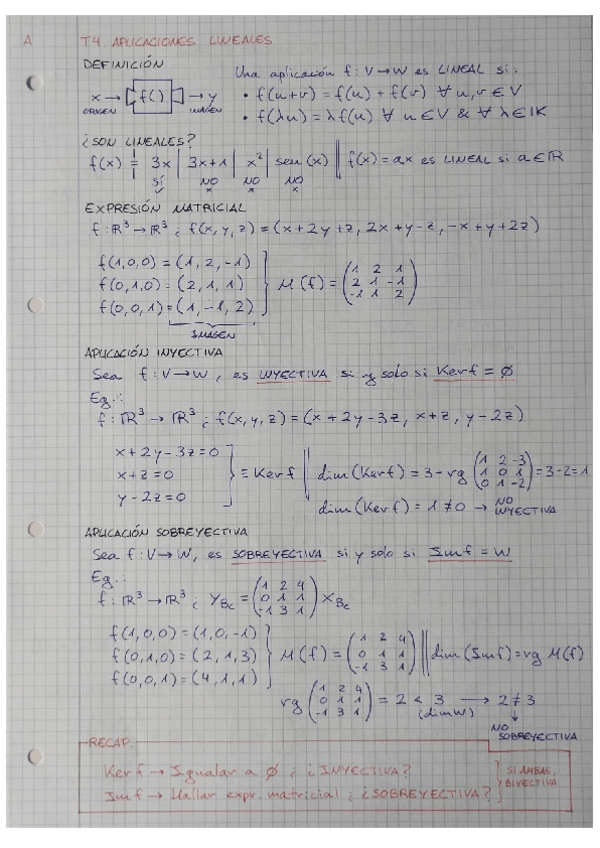 A T4. APLICACIONES LINEALES
DEFINICIÓN
x → f() → y
ORIGEN IMAGEN
Una aplicación f: V → W es LINEAL si:
• f(u+v) = f(u) + f(v) ∀ u,v ∈ V
• f(λu) = λf(u) ∀ u ∈ V & ∀ λ ∈ IK
¿SON LINEALES?
f(x) = 3x | 3x+1 | x² | sen(x) || f(x) = ax es LINEAL si a ∈ ℝ
SÍ NO NO NO
EXPRESIÓN MATRICIAL
f: ℝ³ → ℝ³ ; f(x,y,z) = (x+2y+z, 2x+y-z, -x+y+2z)
f(1,0,0) = (1, 2, -1)
f(0,1,0) = (2, 1, 1)
f(0,0,1) = (1, -1, 2)
IMAGEN
M(f) = (1 2 1
2 1 -1
-1 1 2)
APLICACIÓN INYECTIVA
Sea f: V → W, es INYECTIVA si y solo si Ker f = ∅
Eg.:
f: ℝ³ → ℝ³ ; f(x,y,z) = (x+2y-3z, x+z, y-2z)
x+2y-3z=0
x+z=0
y-2z=0
≡ Ker f || dim(Ker f) = 3 - rg (1 2 -3
1 0 1
0 1 -2) = 3-2 = 1
dim(Ker f) = 1 ≠ 0 → NO INYECTIVA
APLICACIÓN SOBREYECTIVA
Sea f: V → W, es SOBREYECTIVA si y solo si Im f = W
Eg.:
f: ℝ³ → ℝ³ ; Y_Bc = (1 2 4
0 1 1
-1 3 1) X_Bc
f(1,0,0) = (1,0,-1)
f(0,1,0) = (2,1,3)
f(0,0,1) = (4,1,1)
M(f) = (1 2 4
0 1 1
-1 3 1) || dim(Im f) = rg M(f)
rg (1 2 4
0 1 1
-1 3 1) = 2 < 3 → 2 ≠ 3
(dim W)
NO SOBREYECTIVA
RECAP.
Ker f → Igualar a ∅ ; ¿INYECTIVA?
Im f → Hallar expr. matricial ; ¿SOBREYECTIVA?
SI AMBAS, BIYECTIVA